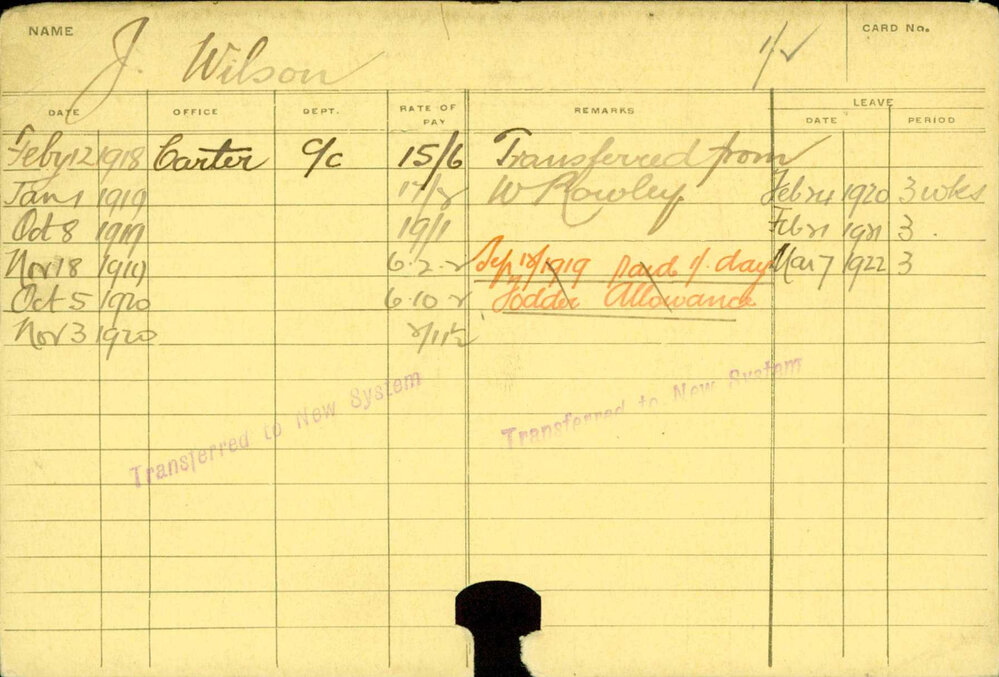 NAME J. Wilson 1/ CARD No.
DATE OFFICE DEPT. RATE OF PAY REMARKS LEAVE
DATE PERIOD
Feby 12 1918 Carter C/C 15/6 Transferred from
Jan 1 1919 17/ W Rowley Feb 24 1920 3 wks
Oct 8 1919 19/1 Feb 21 1921 3
Nov 18 1919 6.2.2 Sep 1919 paid 1/. day Mar 7 1922 3
Oct 5 1920 6.10.2 Fodder Allowance
Nov 3 1920 /11½
Transferred to New System
Transferred to New System